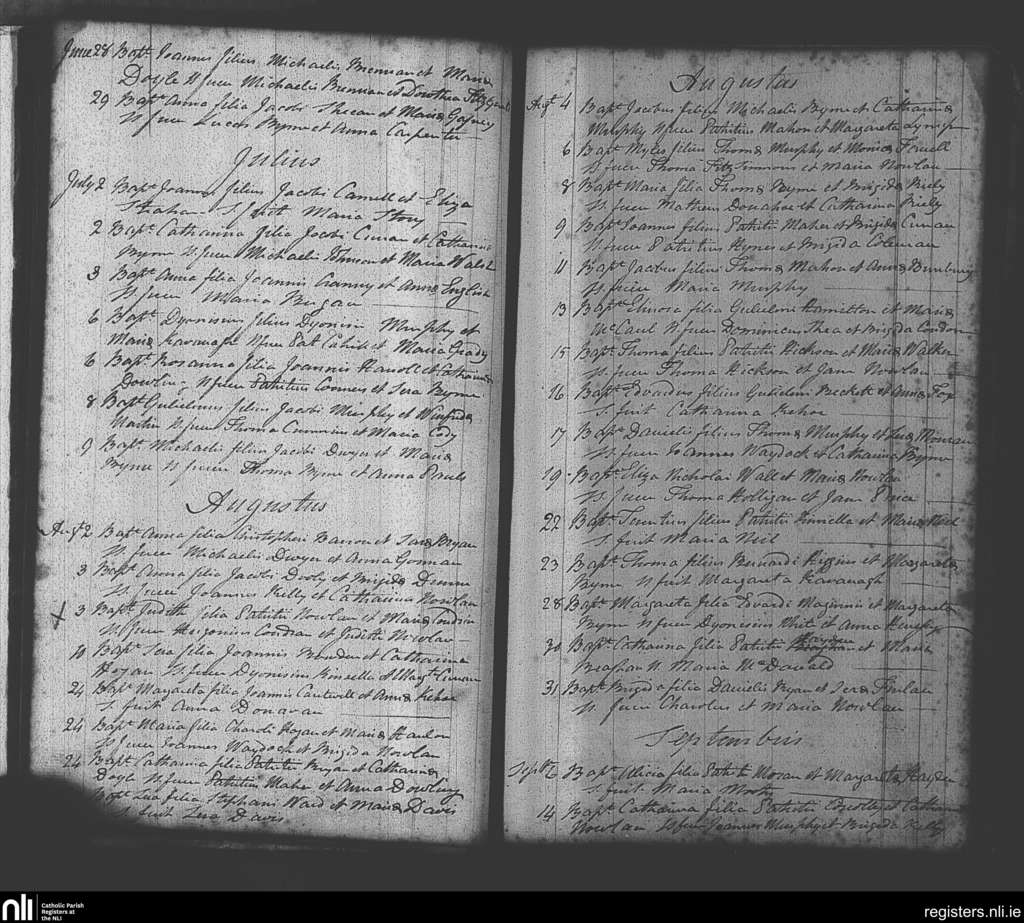 June 28 Bapt Joannes filius Michaelis Brennan et Maria
Doyle Sp fuere Michaelis Brennan et Dorothea
29 Bapt Anna filia Jacobi et Maria Gafney
Sp fuere Lucas Byrne et Anna Carpenter
Julius
July 2 Bapt Joannes filius Jacobi et Eliza
Strahan S fuit Maria Story
2 Bapt Catharina filia Jacobi Curran et Catharina
Byrne Sp fuere Michaelis et Maria Walsh
3 Bapt Anna filia Joannis Cranny et Anna English
Sp fuere Maria
6 Bapt Dyonisius filius Dyonisii Murphy et
Maria Kavanagh Sp fuere Pat Cahill et Maria Grady
6 Bapt Rosanna filia Joannis et Catharina
Dowling Sp fuere Patritius Connors et Sera Byrne
8 Bapt Gulielmus filius Jacobi Murphy et Winfrida
Martin Sp fuere Thoma et Maria Cody
9 Bapt Michaelis filius Jacobi Dwyer et Maria
Byrne Sp fuere Thoma Byrne et Anna
Augustus
Augt 2 Bapt Anna filia Christopheri Barron et Sera Bryan
Sp fuere Michaelis Dwyer et Anna Gorman
3 Bapt Anna filia Jacobi Dooly et Brigida
Sp fuere Joannes Kelly et Catharina Nowlan
X 3 Bapt Judith filia Patritii Nowlan et Maria Condrin
Sp fuere Condran et Judith Nowlan
10 Bapt Sera filia Joannis et Catharina
Hogan Sp fuere Dyonisius Kinsella et Margt Curran
24 Bapt Margareta filia Joannis Cantwell et Anna Kehoe
S fuit Anna Donavan
24 Bapt Maria filia Charoli Hogan et Maria Hanlon
Sp fuere Joannes Waydock et Brigida Nowlan
24 Bapt Catharina filia Patritii Ryan et Catharina
Doyle Sp fuere Patritius Maher et Anna Dowling
Bapt filia Stephani Ward et Maria Davis
S fuit Davis
Augustus
Augt 4 Bapt Jacobus filius Michaelis Byrne et Catharina
Murphy Sp fuere Patritius Mahon et Margareta
6 Bapt Myles filius Thoma Murphy et Monica Farrell
Sp fuere Thoma Fitzsimmons et Maria Nowlan
8 Bapt Maria filia Thoma Byrne et Brigida Kiely
Sp fuere Matheus Donahoe et Catharina Kiely
9 Bapt Joannes filius Patritii Maher et Brigida Curran
Sp fuere Patritius Hynes et Brigida Coleman
11 Bapt Jacobus filius Thoma Mahon et Anna Bunbury
Sp fuere Maria Murphy
13 Bapt Elinora filia Gulielmi Hamilton et Maria
McCaul Sp fuere Dominicus Shea et Brigida Condron
15 Bapt Thoma filius Patritii Hickson et Maria Walker
Sp fuere Thoma Hickson et Jane Nowlan
16 Bapt Edvardus filius Gulielmi Beckett et Anna Fox
S fuit Catharina Kehoe
17 Bapt Danielis filius Thoma Murphy et
Sp fuere Joannes Waydock et Catharina Byrne
19 Bapt Eliza Nicholai Wall et Maria Nowlan
Sp fuere Thoma Holligan et Jane Price
22 Bapt Terentius filius Patritii Kinsella et Maria Neil
S fuit Maria Neil
23 Bapt Thoma filius Bernardi Higgins et Margareta
Byrne Sp fuit Margareta Kavanagh
28 Bapt Margareta filia Edvardi Maginnis et Margareta
Byrne Sp fuere Dyonisius Whit et Anna
30 Bapt Catharina filia Patritii Hayden et Maria
Beaghan Sp Maria McDaneld
31 Bapt Brigida filia Danielis Ryan et Sera
Sp fuere Charolus et Maria Nowlan
Septembris
Sept 2 Bapt Alicia filia Patritii Moran et Margareta Hayden
S fuit Maria
14 Bapt Catharina filia Patritii et Catharina
Nowlan Sp fuere Joannes Murphy et Brigida Kelly
nli Catholic Parish
Registers at
the NLI
registers.nli.ie